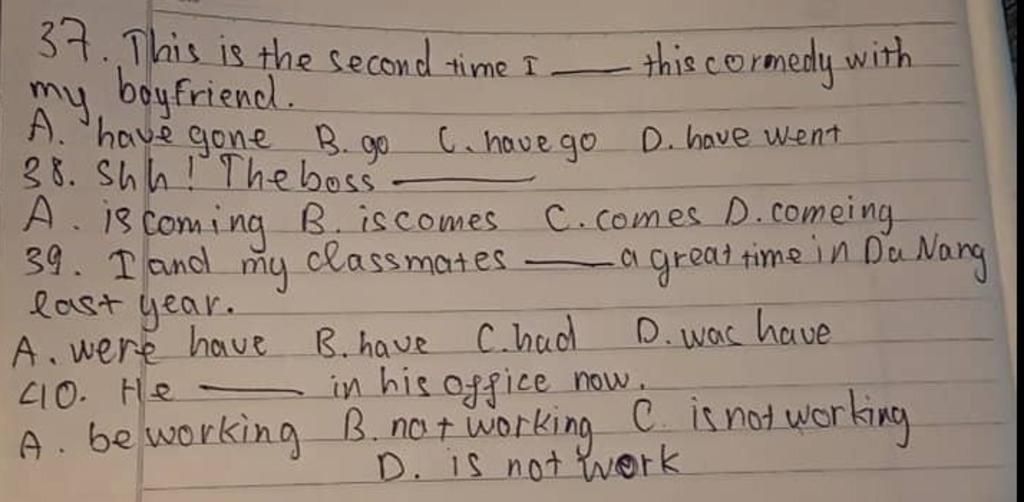 37. This is the second time I ____ this cormedy with
my boyfriend.
A. have gone B. go C. have go D. have went
38. Shh! The boss ____
A. is coming B. is comes C. comes D. comeing
39. I and my classmates ____ a great time in Da Nang
last year.
A. were have B. have C. had D. was have
40. He ____ in his office now.
A. be working B. not working C. is not working
D. is not work